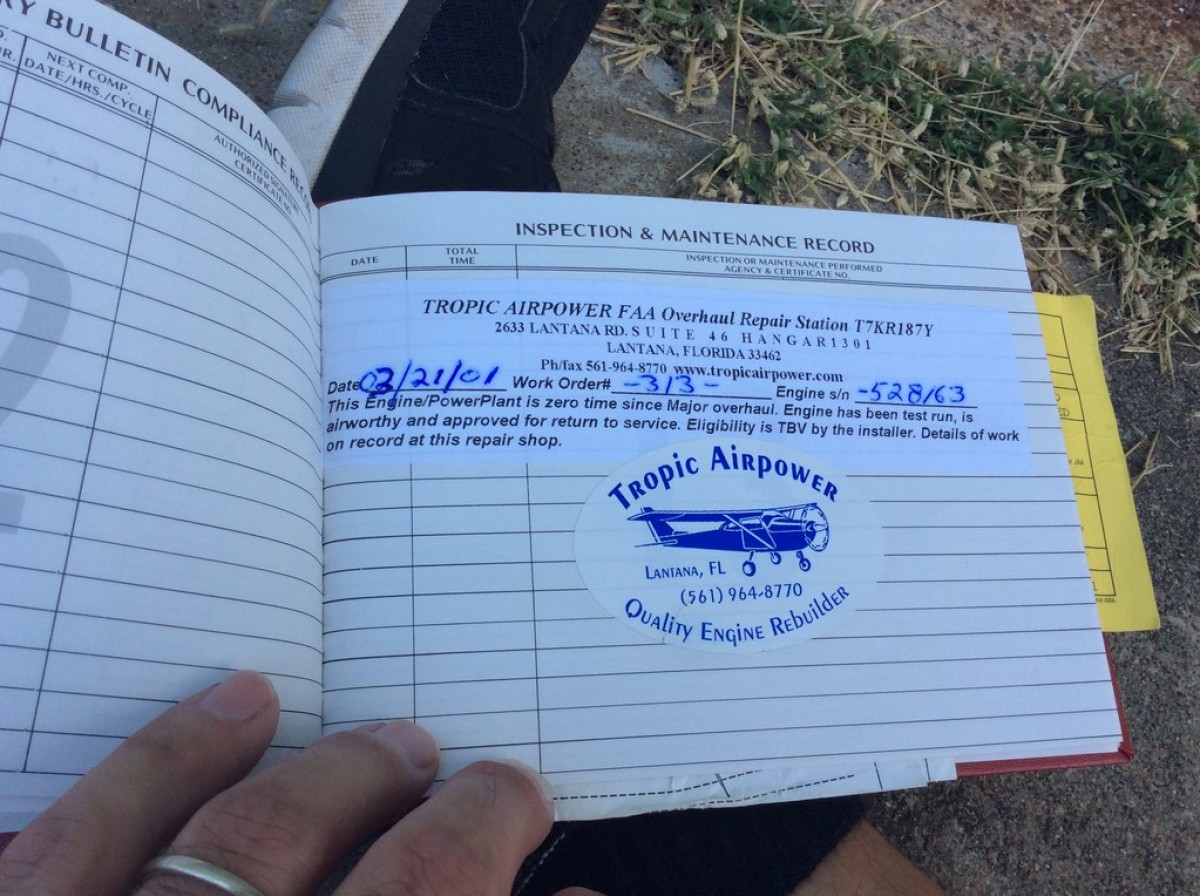 RY BULLETIN COMPLIANCE RECO
NEXT COMP.
DATE/HRS./CYCLE
AUTHORIZED SIGNATURE
CERTIFICATE NO.
INSPECTION & MAINTENANCE RECORD
DATE
TOTAL
TIME
INSPECTION OR MAINTENANCE PERFORMED
AGENCY & CERTIFICATE NO.
TROPIC AIRPOWER FAA Overhaul Repair Station T7KR187Y
2633 LANTANA RD. SUITE 46 HANGAR1301
LANTANA, FLORIDA 33462
Ph/fax 561-964-8770 www.tropicairpower.com
Date 02/21/01 Work Order# -313- Engine s/n -528163
This Engine/PowerPlant is zero time since Major overhaul. Engine has been test run, is
airworthy and approved for return to service. Eligibility is TBV by the installer. Details of work
on record at this repair shop.
TROPIC AIRPOWER
LANTANA, FL
(561) 964-8770
QUALITY ENGINE REBUILDER